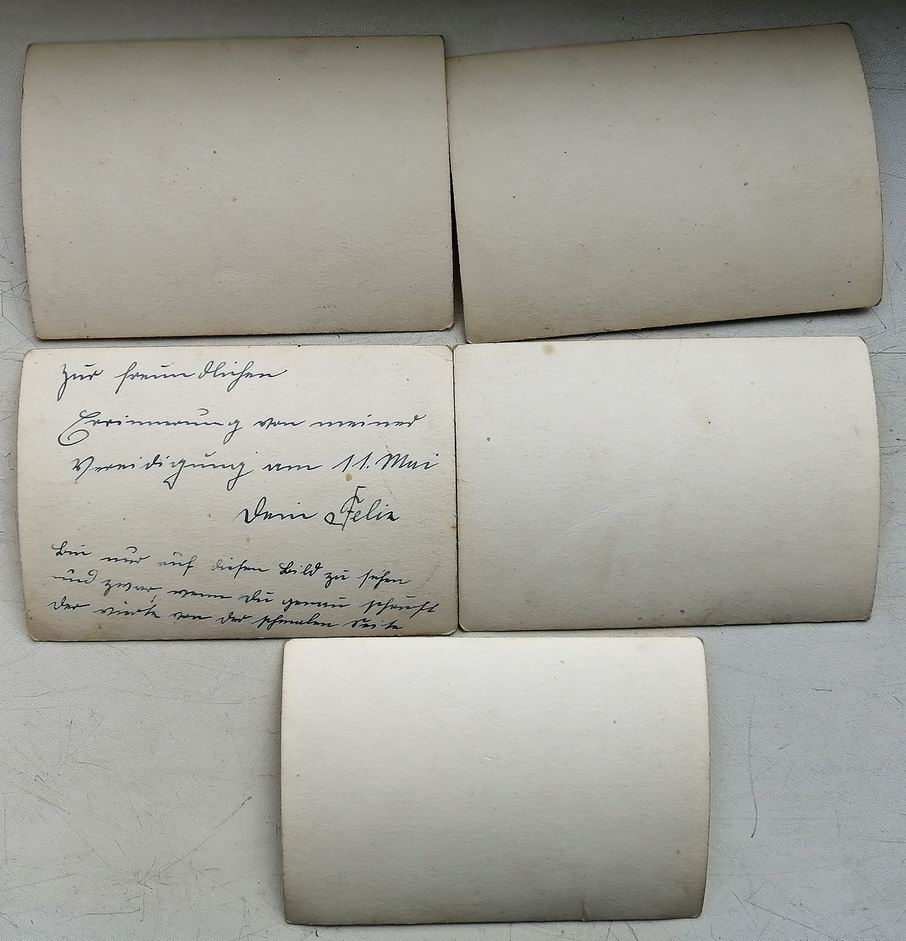 Zur freundlichen
Errinnerung von meiner
Vereidigung am 11. Mai
Dein Felix
Bin nur auf diesen Bild zu sehen
und zwar, wenn du genau schaust
der vierte von der schmalen Seite